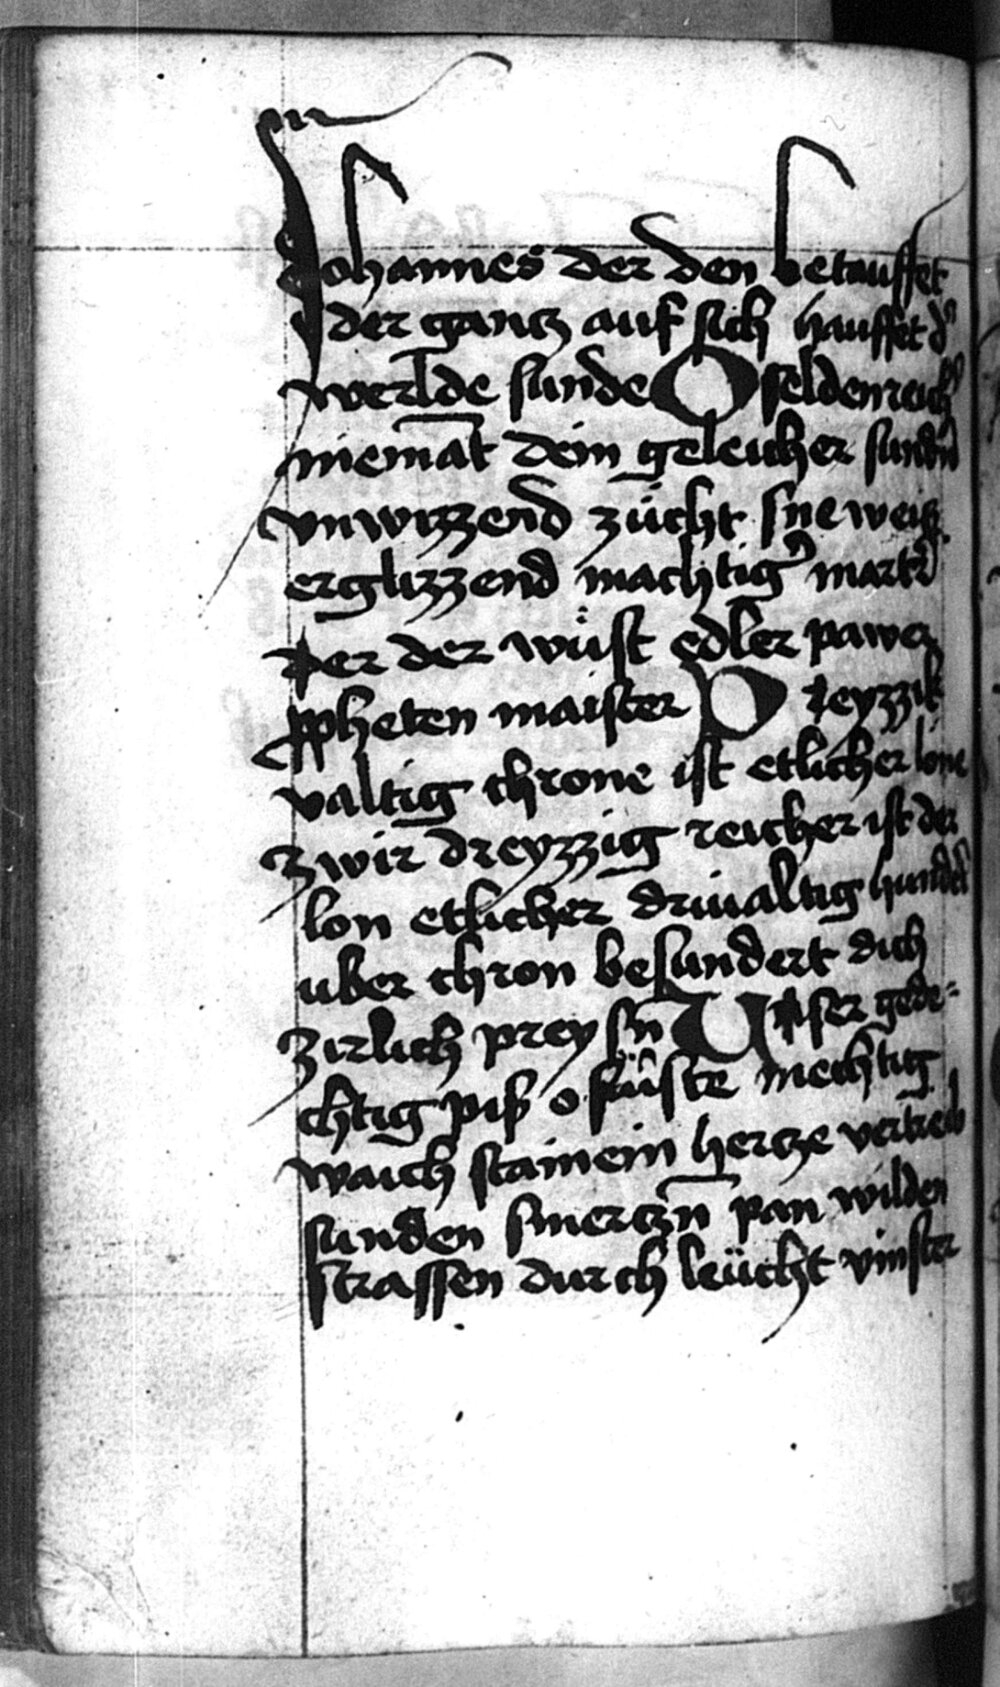 Johannes der den betauffet
der gancz auf sich hauffet d'
werlde sunde O seldenreich'
niemat dein geleicher sundn
vnwizzend zücht sneweiß
erglizzend machtig' martr'
der der wüst edler pawer
ppheten maister D reyzzik
valtig throne ist etlicher lone
zwir dreyzzig reicher ist der
lon etlicher driualtig hundt'
uber chron besundert dich
zirlich preysn U nser gede=
chtig piß o fürste mechtig
waich stainein hercze vertreib
sunden smerczn pan wilden
strassen durch leücht vinster